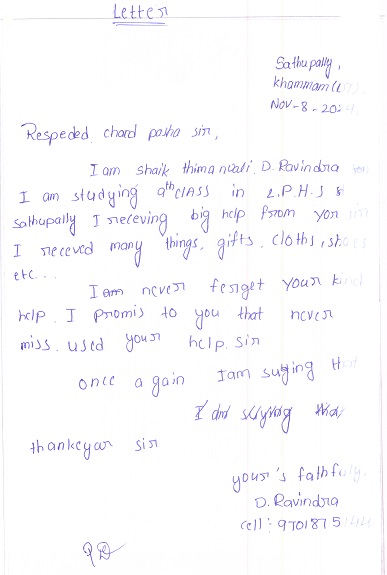 Letter
Sathupally,
Khammam (
Nov-8-202
Respeded. chand pasha sir,
I am shaik thimanvali. D. Ravindra
I am studying 9th class in Z.P.H.S
sathupally I receving big help from you sir
I receved many things, gifts, cloths, shoes
etc...
I am never ferget your kind
help. I promis to you that never
miss. used your help. sir
once a gain I am suying that
thankeyou sir
your's faithfuly.
D. Ravindra
cell: 9701875